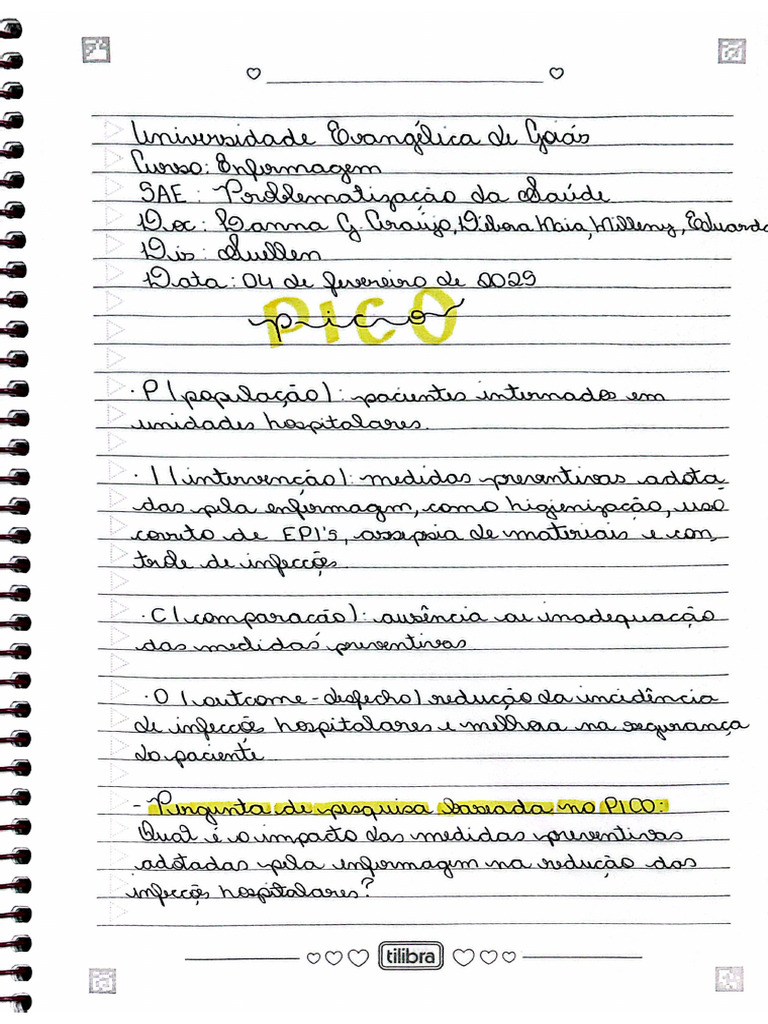 Universidade Evangélica de Goiás
Curso: Enfermagem
SAE: Problematização da Saúde
Doc: Hanna G. Araújo, Débora Maia, Milleny, Eduardo
Dis: Suellen
Data: 04 de fevereiro de 2025
PICO
pico
· P (população): pacientes internados em
unidades hospitalares.
· I (intervenção): medidas preventivas adota
das pela enfermagem, como higienização, uso
correto de EPI's, assepsia de materiais e con,
trole de infecções
· C (comparação): ausência ou inadequação
das medidas preventivas
· O (outcome - desfecho) redução da incidência
de infecções hospitalares e melhora na segurança
do paciente
- Pergunta de pesquisa baseada no PICO:
Qual é o impacto das medidas preventivas
adotadas pela enfermagem na redução das
infecções hospitalares?
tilibra